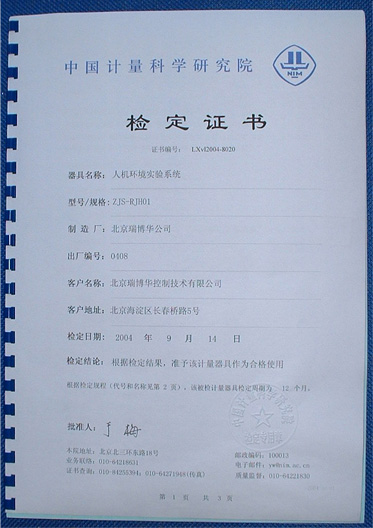 中国计量科学研究院
NIM
检定证书
证书编号: LXvl2004-8020
器具名称: 人机环境实验系统
型号/规格: ZJS-RJH01
制 造 厂: 北京瑞博华公司
出厂编号: 0408
客户名称: 北京瑞博华控制技术有限公司
客户地址: 北京海淀区长春桥路5号
检定日期: 2004 年 9 月 14 日
检定结论: 根据检定结果，准予该计量器具作为合格使用
根据检定规程（代号和名称见第 2 页），该被检计量器具检定周期为 12 个月。
批准人:
本院地址: 北京北三环东路18号 邮政编码: 100013
业务联络: 010-64218631 电子邮件: yw@nim.ac.cn
证书查询: 010-84255304; 010-64271948(传真) 质量监督: 010-64221830
第 1 页 共 3 页